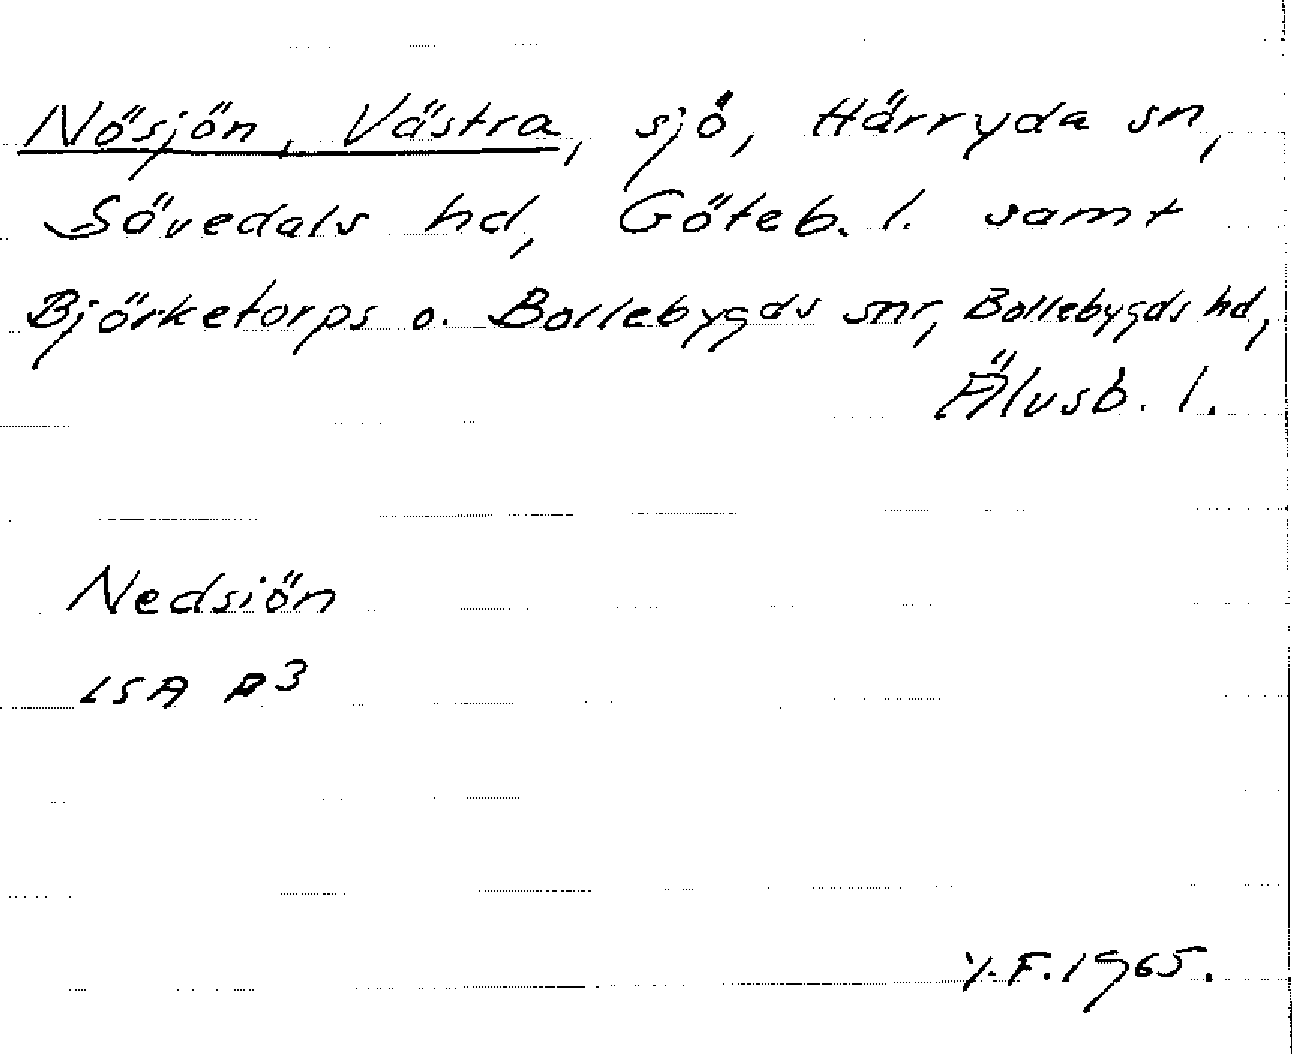 Nösjön, Västra, sjö, Härryda sn,
Sävedals hd, Göteb. l. samt
Björketorps o. Bollebygds snr, Bollebygds hd,
Älvsb. l.
Nedsiön
LSA A3
Y.F. 1965.